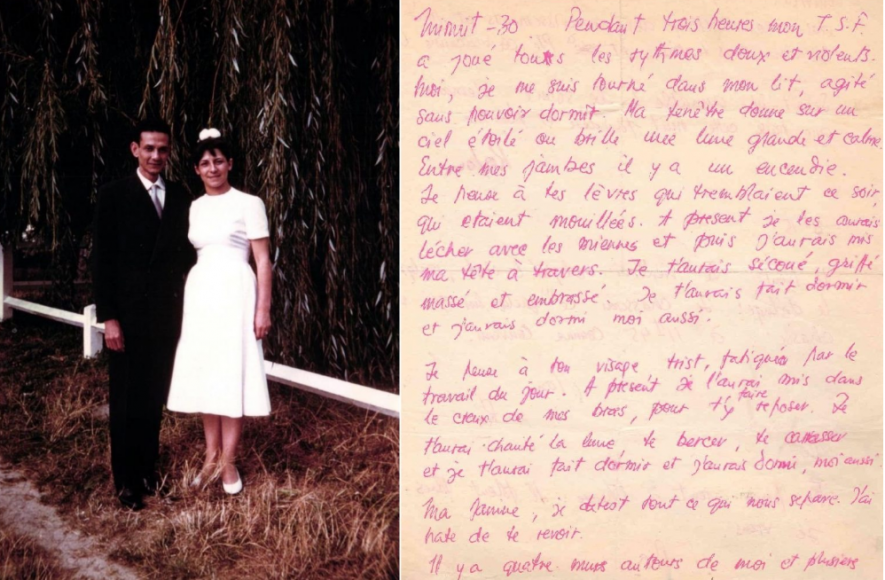 Minuit - 30 Pendant trois heures mon T.S.F.
a joué touts les rythmes doux et violents.
Moi, je me suis tourné dans mon lit, agité
sans pouvoir dormir. Ma fenêtre donne sur un
ciel étoilé ou brille une lune grande et calme.
Entre mes jambes il y a un encendie.
Je pense à tes lèvres qui tremblaient ce soir,
qui etaient mouillées. A present je les aurais
lécher avec les miennes et puis j'aurais mis
ma tête à travers. Je t'aurais sécoué, griffé
massé et embrassé. Je t'aurais fait dormir
et j'aurais dormi moi aussi.
Je pense à ton visage trist, fatiguée par le
travail du jour. A present je l'aurai mis dans
le creux de mes bras, pour t'y faire reposer. Je
t'aurai chanté la lune te bercer, te carasser
et je t'aurai fait dormir et j'aurais dormi, moi aussi
Ma femme, je detest tout ce qui nous separe. J'ai
hate de te revoir.
Il y a quatre murs autours de moi et plusiers